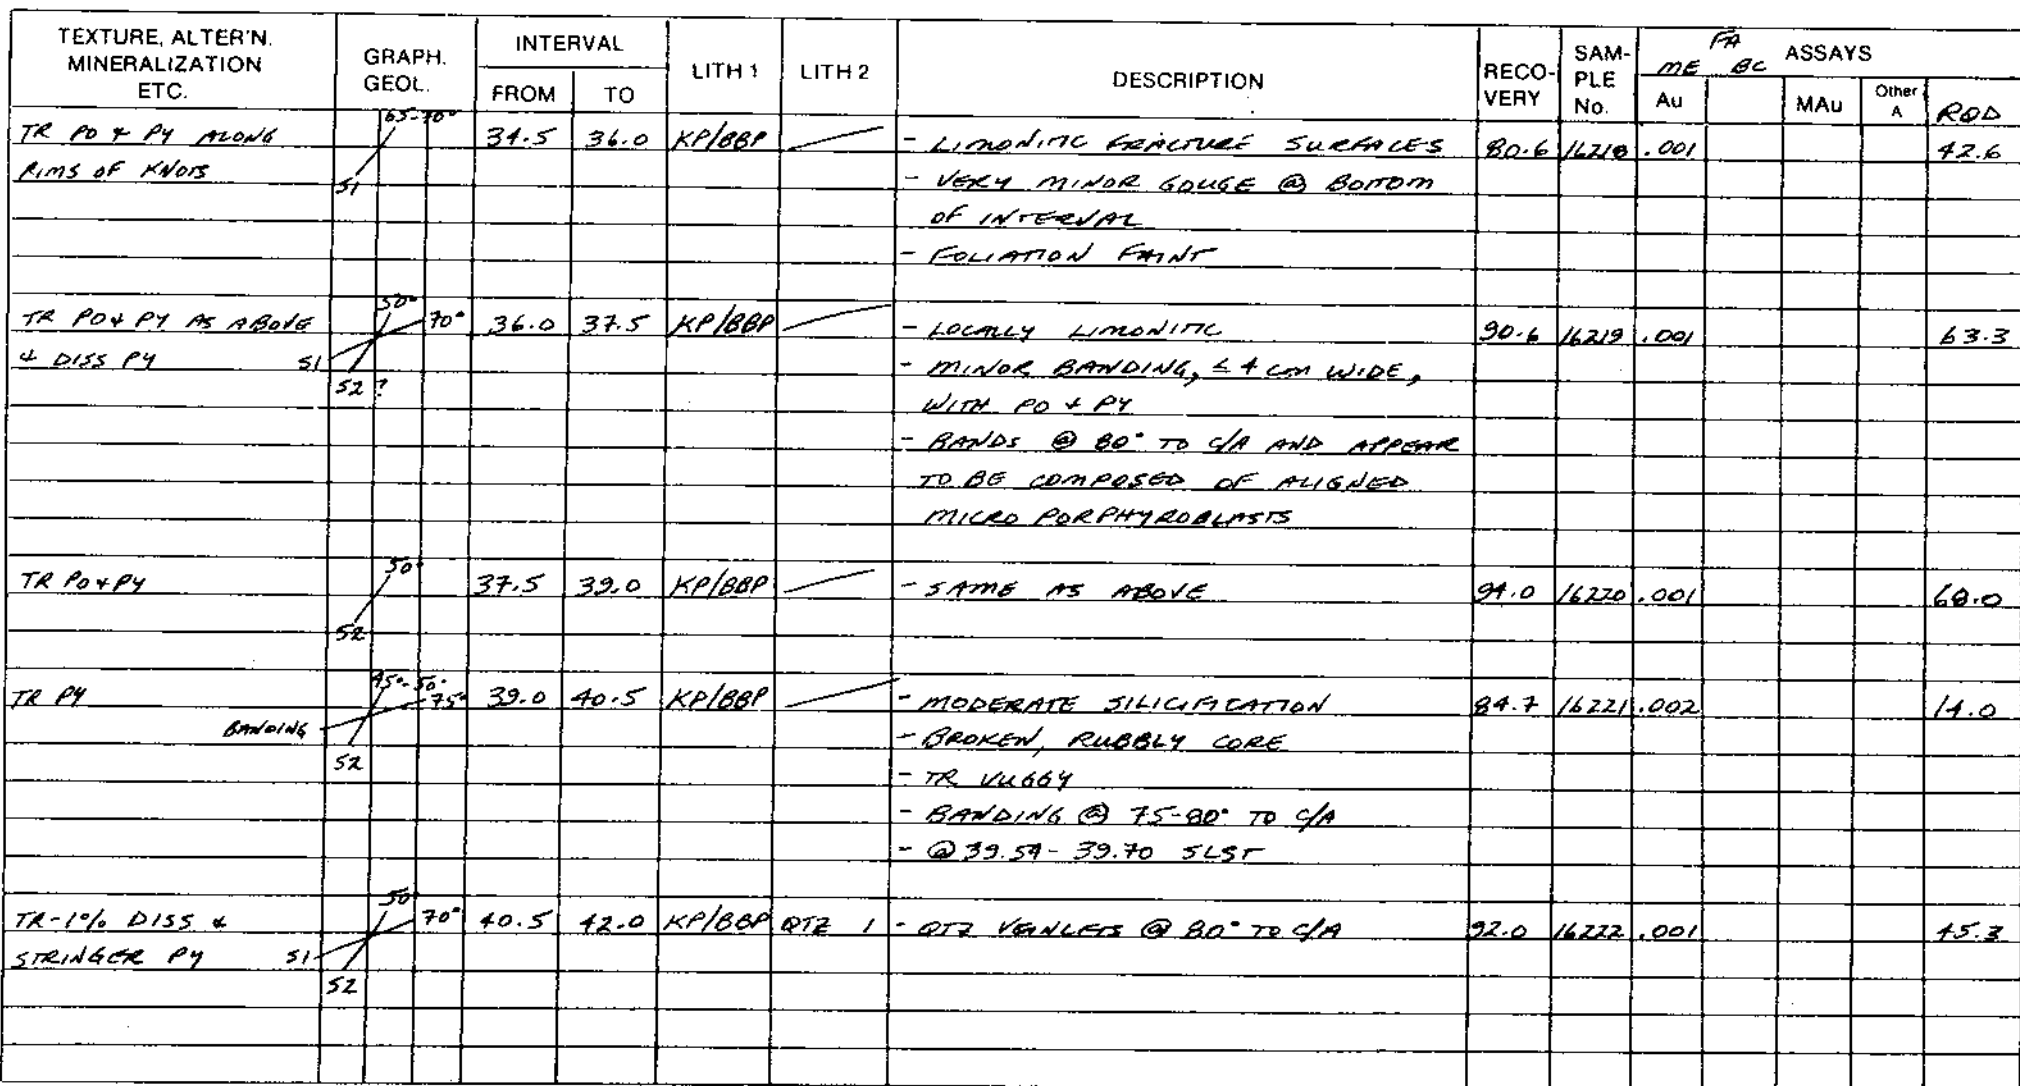 TEXTURE, ALTER'N. MINERALIZATION ETC. GRAPH. GEOL. INTERVAL FROM TO LITH 1 LITH 2 DESCRIPTION RECO-VERY SAM-PLE No. FA ME BC ASSAYS Au MAu Other A RQD
65-70°
TR PO & PY ALONG 34.5 36.0 KP/BBP - LIMONITIC FRACTURE SURFACES 80.6 16218 .001 42.6
RIMS OF KNOTS S1 - VERY MINOR GOUGE @ BOTTOM
OF INTERVAL
- FOLIATION FAINT
50°
TR PO & PY AS ABOVE 70° 36.0 37.5 KP/BBP - LOCALLY LIMONITIC 90.6 16219 .001 63.3
& DISS PY S1 - MINOR BANDING, ≤ 4 CM WIDE,
S2 ? WITH PO & PY
- BANDS @ 80° TO C/A AND APPEAR
TO BE COMPOSED OF ALIGNED
MICRO PORPHYROBLASTS
50°
TR PO & PY 37.5 39.0 KP/BBP - SAME AS ABOVE 94.0 16220 .001 68.0
S2
45°-50°
TR PY 75° 39.0 40.5 KP/BBP - MODERATE SILICIFICATION 84.7 16221 .002 14.0
BANDING - BROKEN, RUBBLY CORE
S2 - TR VUGGY
- BANDING @ 75-80° TO C/A
- @ 39.54-39.70 SLST
50°
TR-1% DISS & 70° 40.5 42.0 KP/BBP QTZ 1 - QTZ VEINLETS @ 80° TO C/A 92.0 16222 .001 45.3
STRINGER PY S1
S2